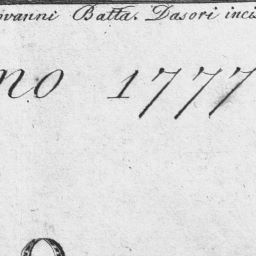 ovanni Batta. Dasori inci
no 1777